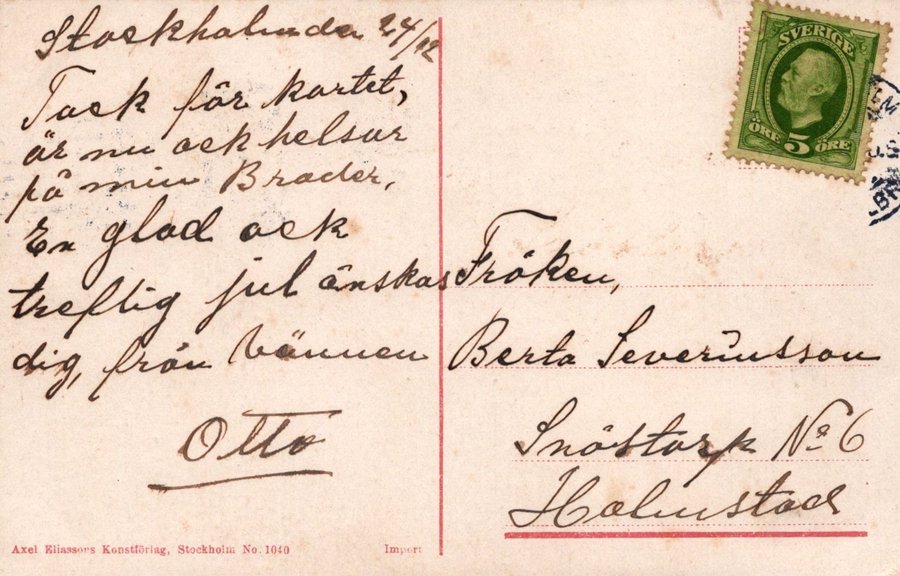 Stockholm den 24/12
Tack för kortet,
är nu ock helsar
på min Broder,
En glad ock
treflig jul önskas
dig, från Vännen
Otto
Axel Eliassons Konstförlag, Stockholm No. 1040
Import
SVERIGE
ÖRE 5 ÖRE
Fröken,
Berta Severinsson
Snöstorp No 6
Halmstad